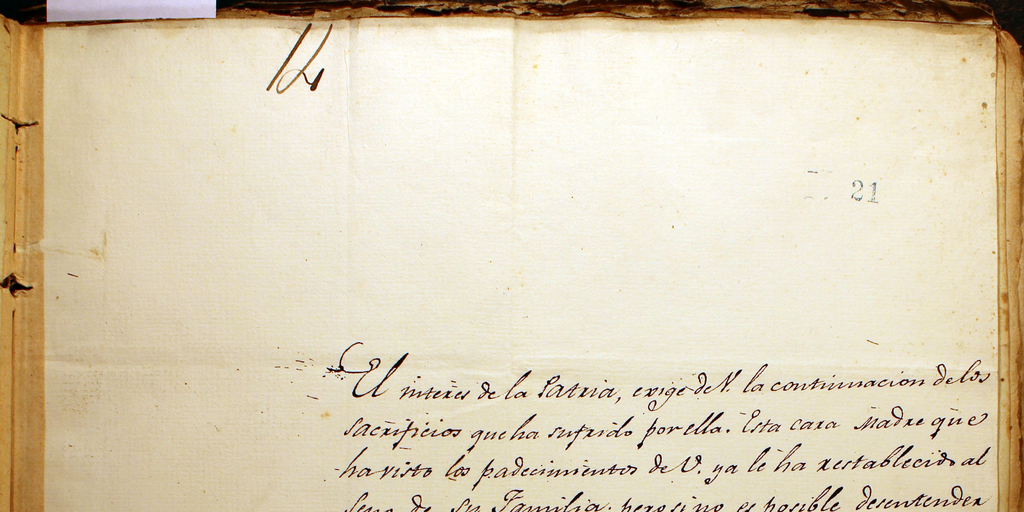 12
21
El interes de la Patria, exige de V. la continuacion de los
sacrificios que ha sufrido por ella. Esta cara Madre que
ha visto los padecimientos de V. ya le ha restablecido al
seno de su Familia; pero si no es posible desentender